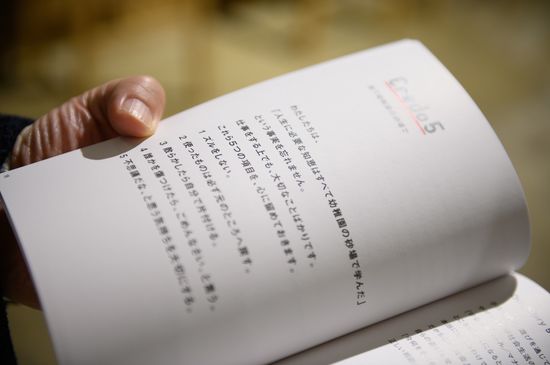 Credo5
わたしたちは、
「人生に必要な知恵はすべて幼稚園の砂場で学んだ」
という事実を忘れません。
仕事をする上でも、大切なことばかりです。
これら5つの項目を、心に留めておきます。
1 ズルをしない。
2 使ったものは必ず元のところへ戻す。
3 散らかしたら自分で片付ける。
4 誰かを傷つけたら、ごめんなさい、と言う。
5 不思議だな、と思う気持ちを大切にする。
遊びを通じて
社会生活の